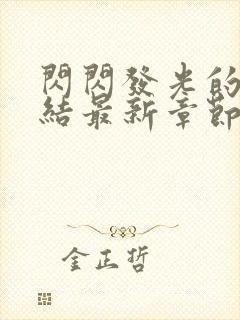 閃閃發光的
結最新章節
金正哲